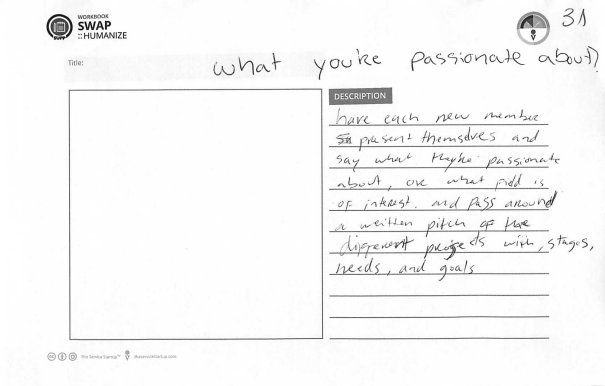 WORKBOOK
SWAP
:: HUMANIZE
31
Title:
what you're passionate about?
DESCRIPTION
have each new member
present themselves and
say what they're passionate
about, or what field is
of interest. and pass around
a written pitch of the
different projects with, stages,
needs, and goals
The Service Startup™
theservicestartup.com